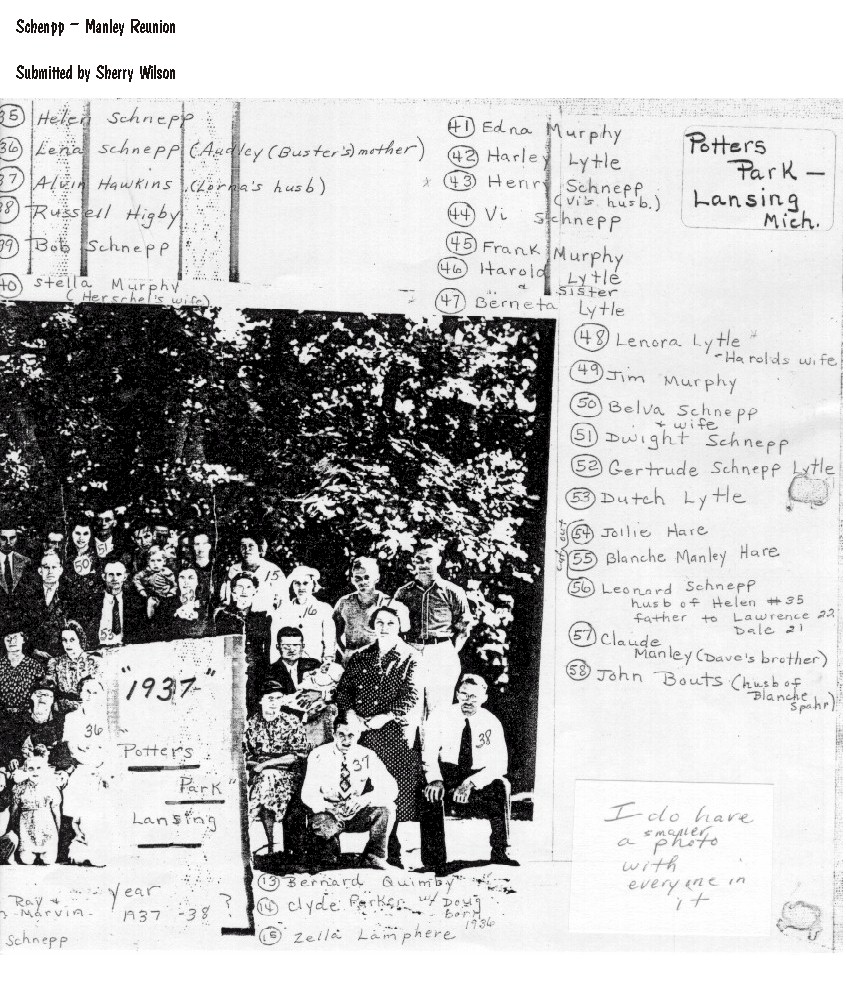 Schenpp - Manley Reunion
Submitted by Sherry Wilson
35 Helen Schnepp
36 Lena Schnepp (Audley (Buster's) mother)
37 Alvin Hawkins (Lorna's husb)
38 Russell Higby
39 Bob Schnepp
40 Stella Murphy
(Herschel's wife)
41 Edna Murphy
42 Harley Lytle
x 43 Henry Schnepp
(Vi's husb.)
44 Vi Schnepp
45 Frank Murphy
46 Harold Lytle
& sister
47 Berneta Lytle
Potters
Park -
Lansing
Mich.
48 Lenora Lytle
-Harolds wife
49 Jim Murphy
50 Belva Schnepp
& wife
51 Dwight Schnepp
52 Gertrude Schnepp Lytle
53 Dutch Lytle
54 Jollie Hare
55 Blanche Manley Hare
56 Leonard Schnepp
husb of Helen #35
father to Lawrence 22
Dale 21
57 Claude
Manley (Dave's brother)
58 John Bouts (husb of
Blanche
Spahr)
50
51
53
15
16
36
37
38
"1937"
Potters
Park"
Lansing
I do have
smaller
a photo
with
everyone in
it
Ray &
Marvin
Schnepp
Year
1937-38 ?
13 Bernard Quimby
14 Clyde Parker w/ Doug
born
1936
15 Zella Lamphere